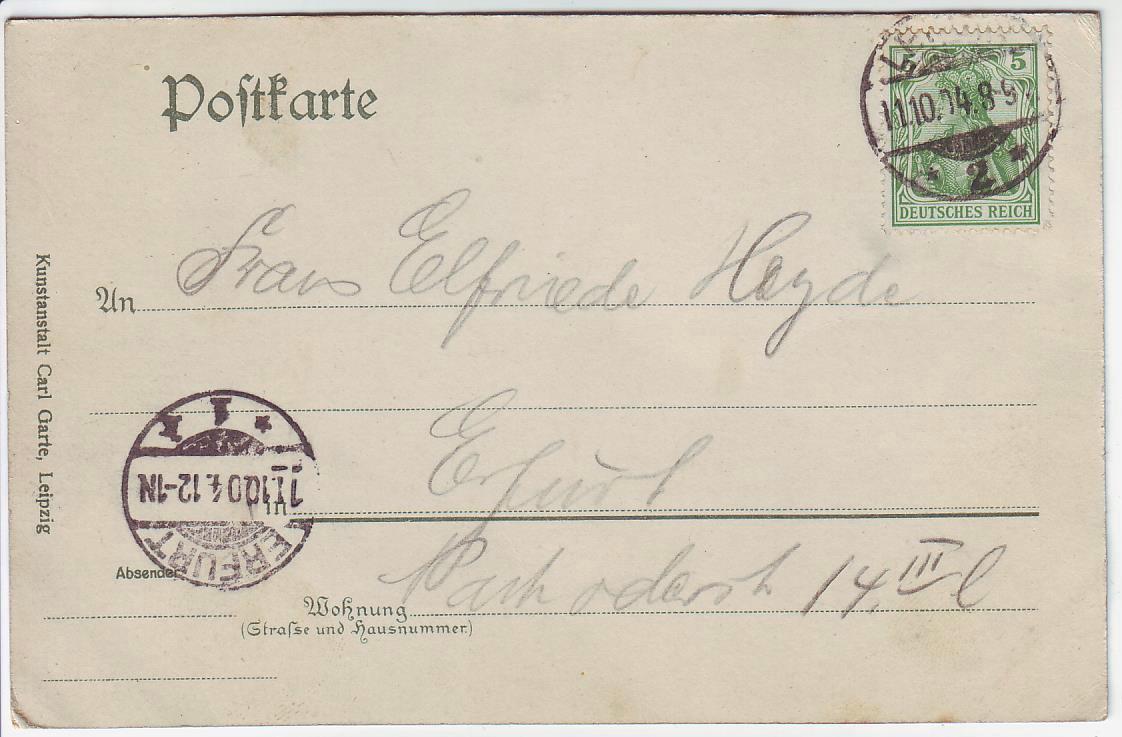 Postkarte
5 5
11.10.04.8-9
* 2 *
DEUTSCHES REICH
An Frau Elfriede Heyde
Kunstanstalt Carl Garte, Leipzig
* 1
11.10.04.12-1N
ERFURT
in Erfurt
Absender
Wohnung 14 III l
(Straſse und Hausnummer)